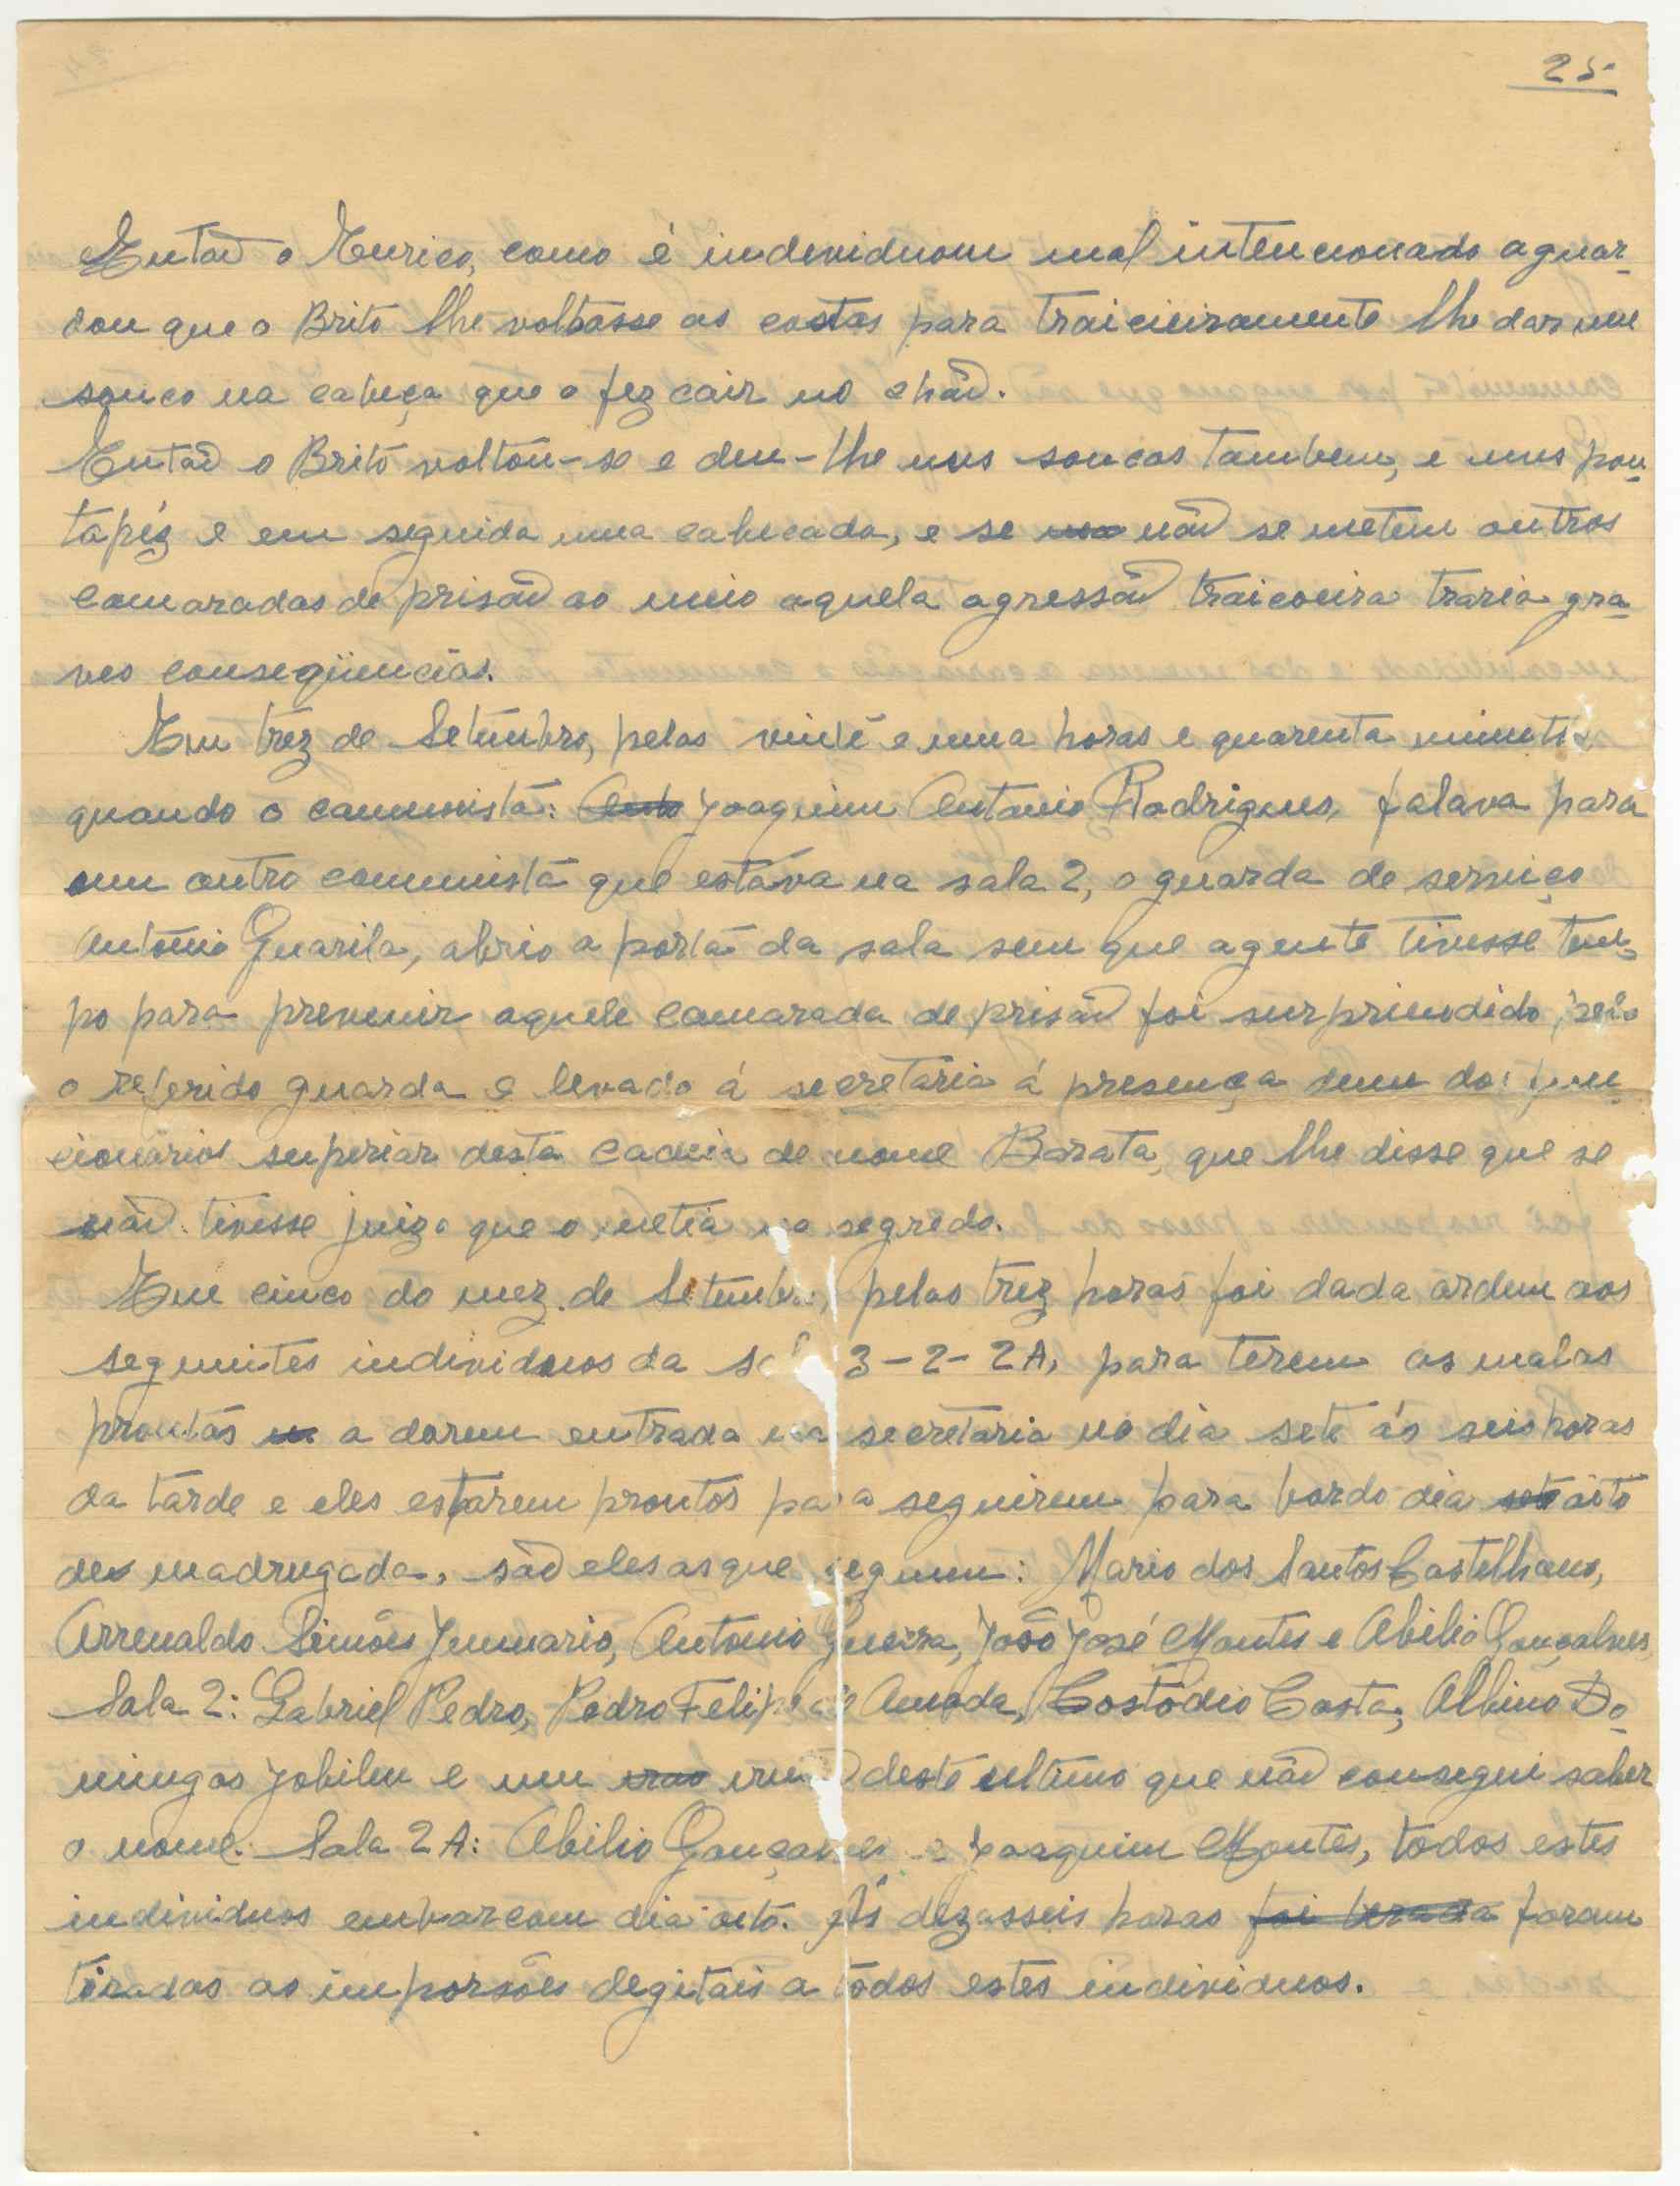 25
Então o Eurico, como é individuom mal intencionado aguar-
dou que o Brito lhe voltasse as costas para traicieiramente lhe dar um
souco na cabeça que o fez cair no chão.
Então o Brito voltou-se e deu-lhe uns soucos tambem, e uns pon-
tapéz e em seguida uma cabecada, e se não se metem outros
camaradas de prisão ao meio aquela agressão traicoeira traria gra-
ves conseqüencias.
Em trez de Setembro, pelas vinte e uma horas e quarenta minutos
quando o communista: Joaquim Antonio Rodrigues, falava para
um outro communista que estava na sala 2, o guarda de serviço
António Guarita, abrio a porta da sala sem que agente tivesse tem-
po para prevenir aquele camarada de prisão foi surpriendido, pelo
o referido guarda e levado á secretaria á presença dum dos fun-
cionários superiar desta cadeia de nome Barata, que lhe disse que se
não tivesse juizo que o metia no segredo.
Em cinco do mez de Setembro, pelas trez horas foi dada ordem aos
seguintes individuos da sala 3-2-2A, para terem as malas
prontas a darem entrada na secretaria no dia sete ás seis horas
da tarde e eles estarem prontos para seguirem para bordo dia oito
de madrugada, são eles as que seguem: Mario dos Santos Castelhano,
Arrenaldo Simões Jennuario, Antonio Gueirra, João José Montes e Abilio Gonçalves,
Sala 2: Gabriel Pedro, Pedro Felipe de Amada, Costódio Costa, Albino Do-
mingas Jobileu e um irmão deste ultimo que não consegui saber
o nome. Sala 2A: Abilio Gonçalves e Joaquim Montes, todos estes
individuos embarcam dia oito. Ás dezasseis horas foram
tiradas as imporsões degitais a todos estes individuos.